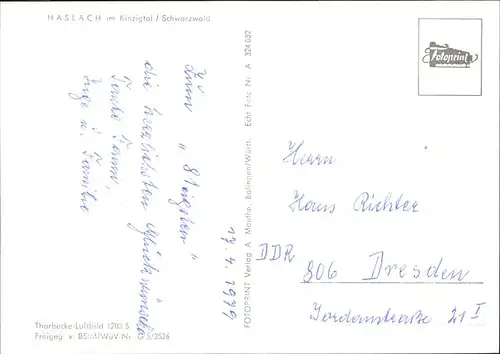 HASLACH im Kinzigtal / Schwarzwald
Fotoprint
Zum "
"
die herzlichsten Glückwünsche
Inge u. Familie
17. 4. 1979
FOTOPRINT Verlag A. Mauthe, Balingen/Württ. Echt Foto Nr. A 324 052
Herrn
Hans Richter
DDR
806 Dresden
Jordanstraße 21 I
Thorbecke-Luftbild 1200 S
Freigeg. v. BStMfWuV-Nr. G 5/3526